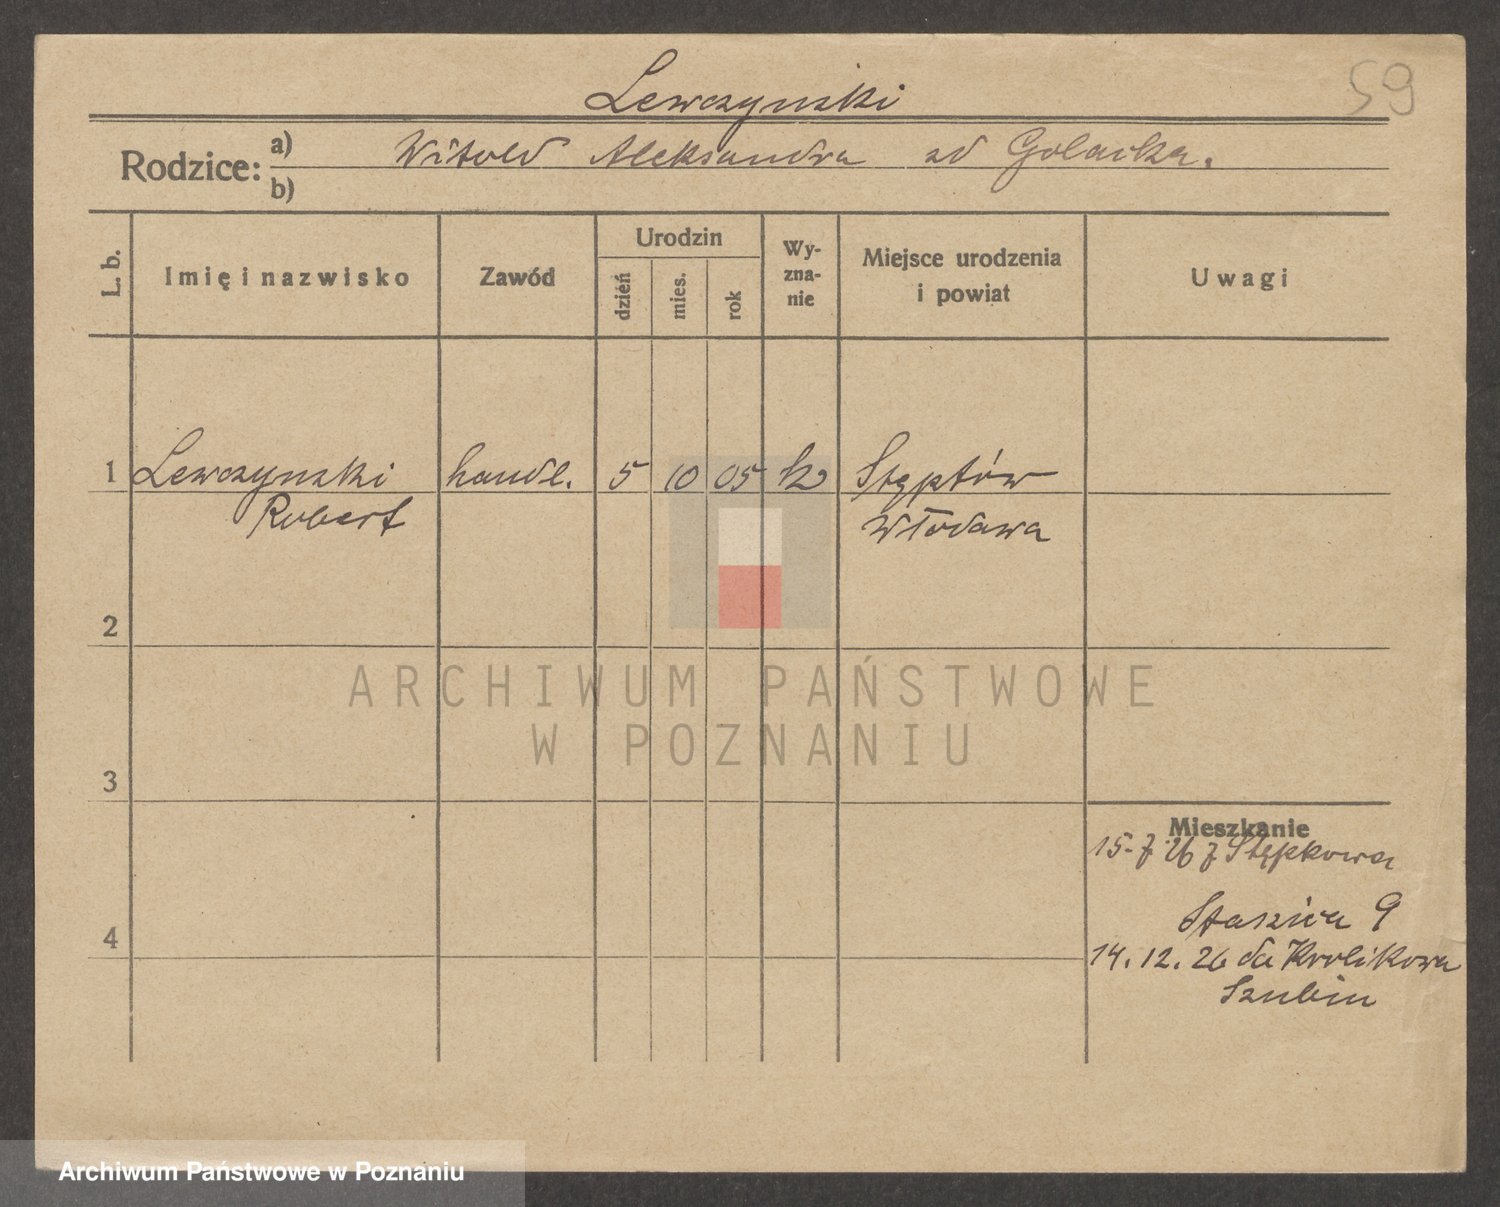 Lewczynski
59
Rodzice:
a) Witold Aleksandra zd Golacka.
b)
L. b.
Imię i nazwisko
Zawód
Urodzin
dzień
mies.
rok
Wy-
zna-
nie
Miejsce urodzenia
i powiat
Uwagi
1 Lewczynski handl. 5 10 05 Stęptów
Robert Włodawa
2
3
4
Mieszkanie
15-7 26 z Stępkowa
Staszica 9
14.12.26 do Krolikowa
Szubin
ARCHIWUM PAŃSTWOWE
W POZNANIU
Archiwum Państwowe w Poznaniu